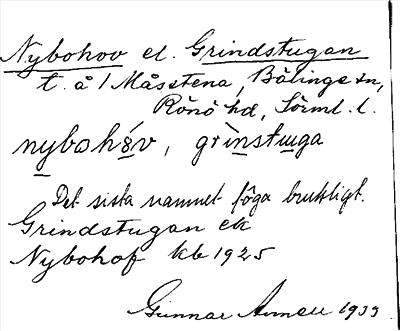 Nybohov el. Grindstugan
t. å 1 Måsstena, Bälinge sn,
Rönö hd, Sörml. l.
nybohóv, grìnstuga
Det sista namnet föga brukligt.
Grindstugan ek
Nybohof kb 1925
Gunnar 1933